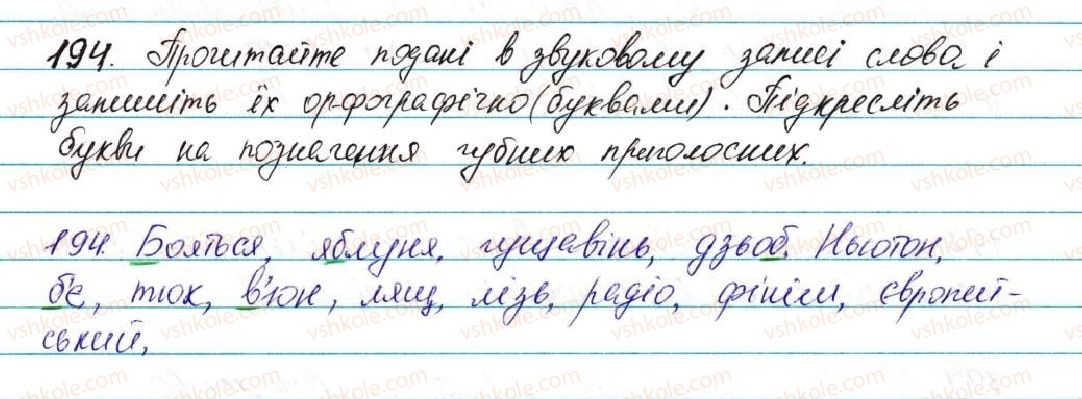 194. Прочитайте подані в звуковому записі слова і
запишіть їх орфографічно (буквами). Підкресліть
букви на позначення губних приголосних.
194. Бояться, яблуня, гущавінь, дзьоб, Ньютон,
б'є, тюк, в'юн, лящ, лізь, радіо, фініш, європей-
ський,